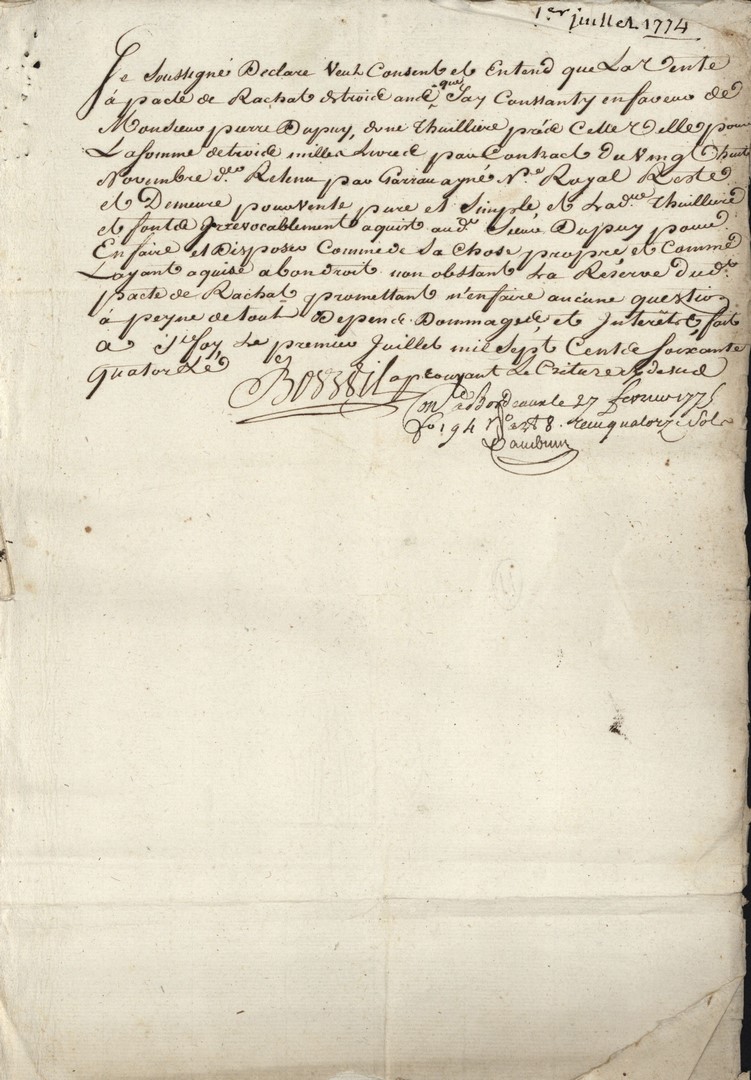 1.er juillet 1774
Je Soussigné Declare Veut Consent et Entend que La Vente
á pacte de Rachat de trois ans que J'ay Conssanty en faveur de
Monsieur pierre Dupuy, d'une Thuilliere prés Cette Ville pour
La somme de trois milles Livres par Contract du Vingt huit
Novembre d.er Retenu par Garrau ayné N.re Royal Reste
et Demeure pour vente pure et Simple et Lad.e Thuilliere
et fonds Irrevocablement aquist aud.t Sieur Dupuy pour
En faire et Disposer Comme de Sa Chose propre et Comme
Layant aquise a bon droit non obstant La Réserve dud.t
pacte de Rachat promettant n'en faire aucune question
á peyne de tout Depens Dommages et Interêts fait
a S.te foy Le premier Juillet mil Sept Cents Soixante
quatorze
approuvant L'ecriture cy dessus
Bordeaux le 27 fevrier 1775
f.o 194 V.o art 8. Reçu quatorze Sols